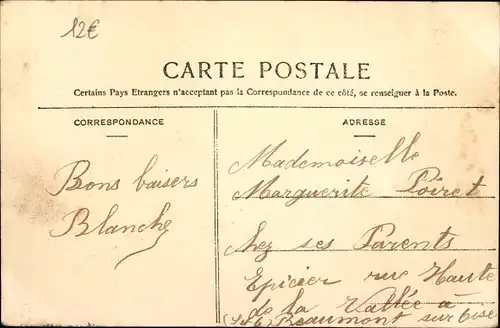 12€
CARTE POSTALE
Certains Pays Etrangers n'acceptent pas la Correspondance de ce côté, se renseigner à la Poste.
CORRESPONDANCE
ADRESSE
Bons baisers
Blanche
Mademoiselle
Marguerite Poiret
chez ses Parents
Epicier rue Haute
de la Vallée à
Beaumont sur Oise